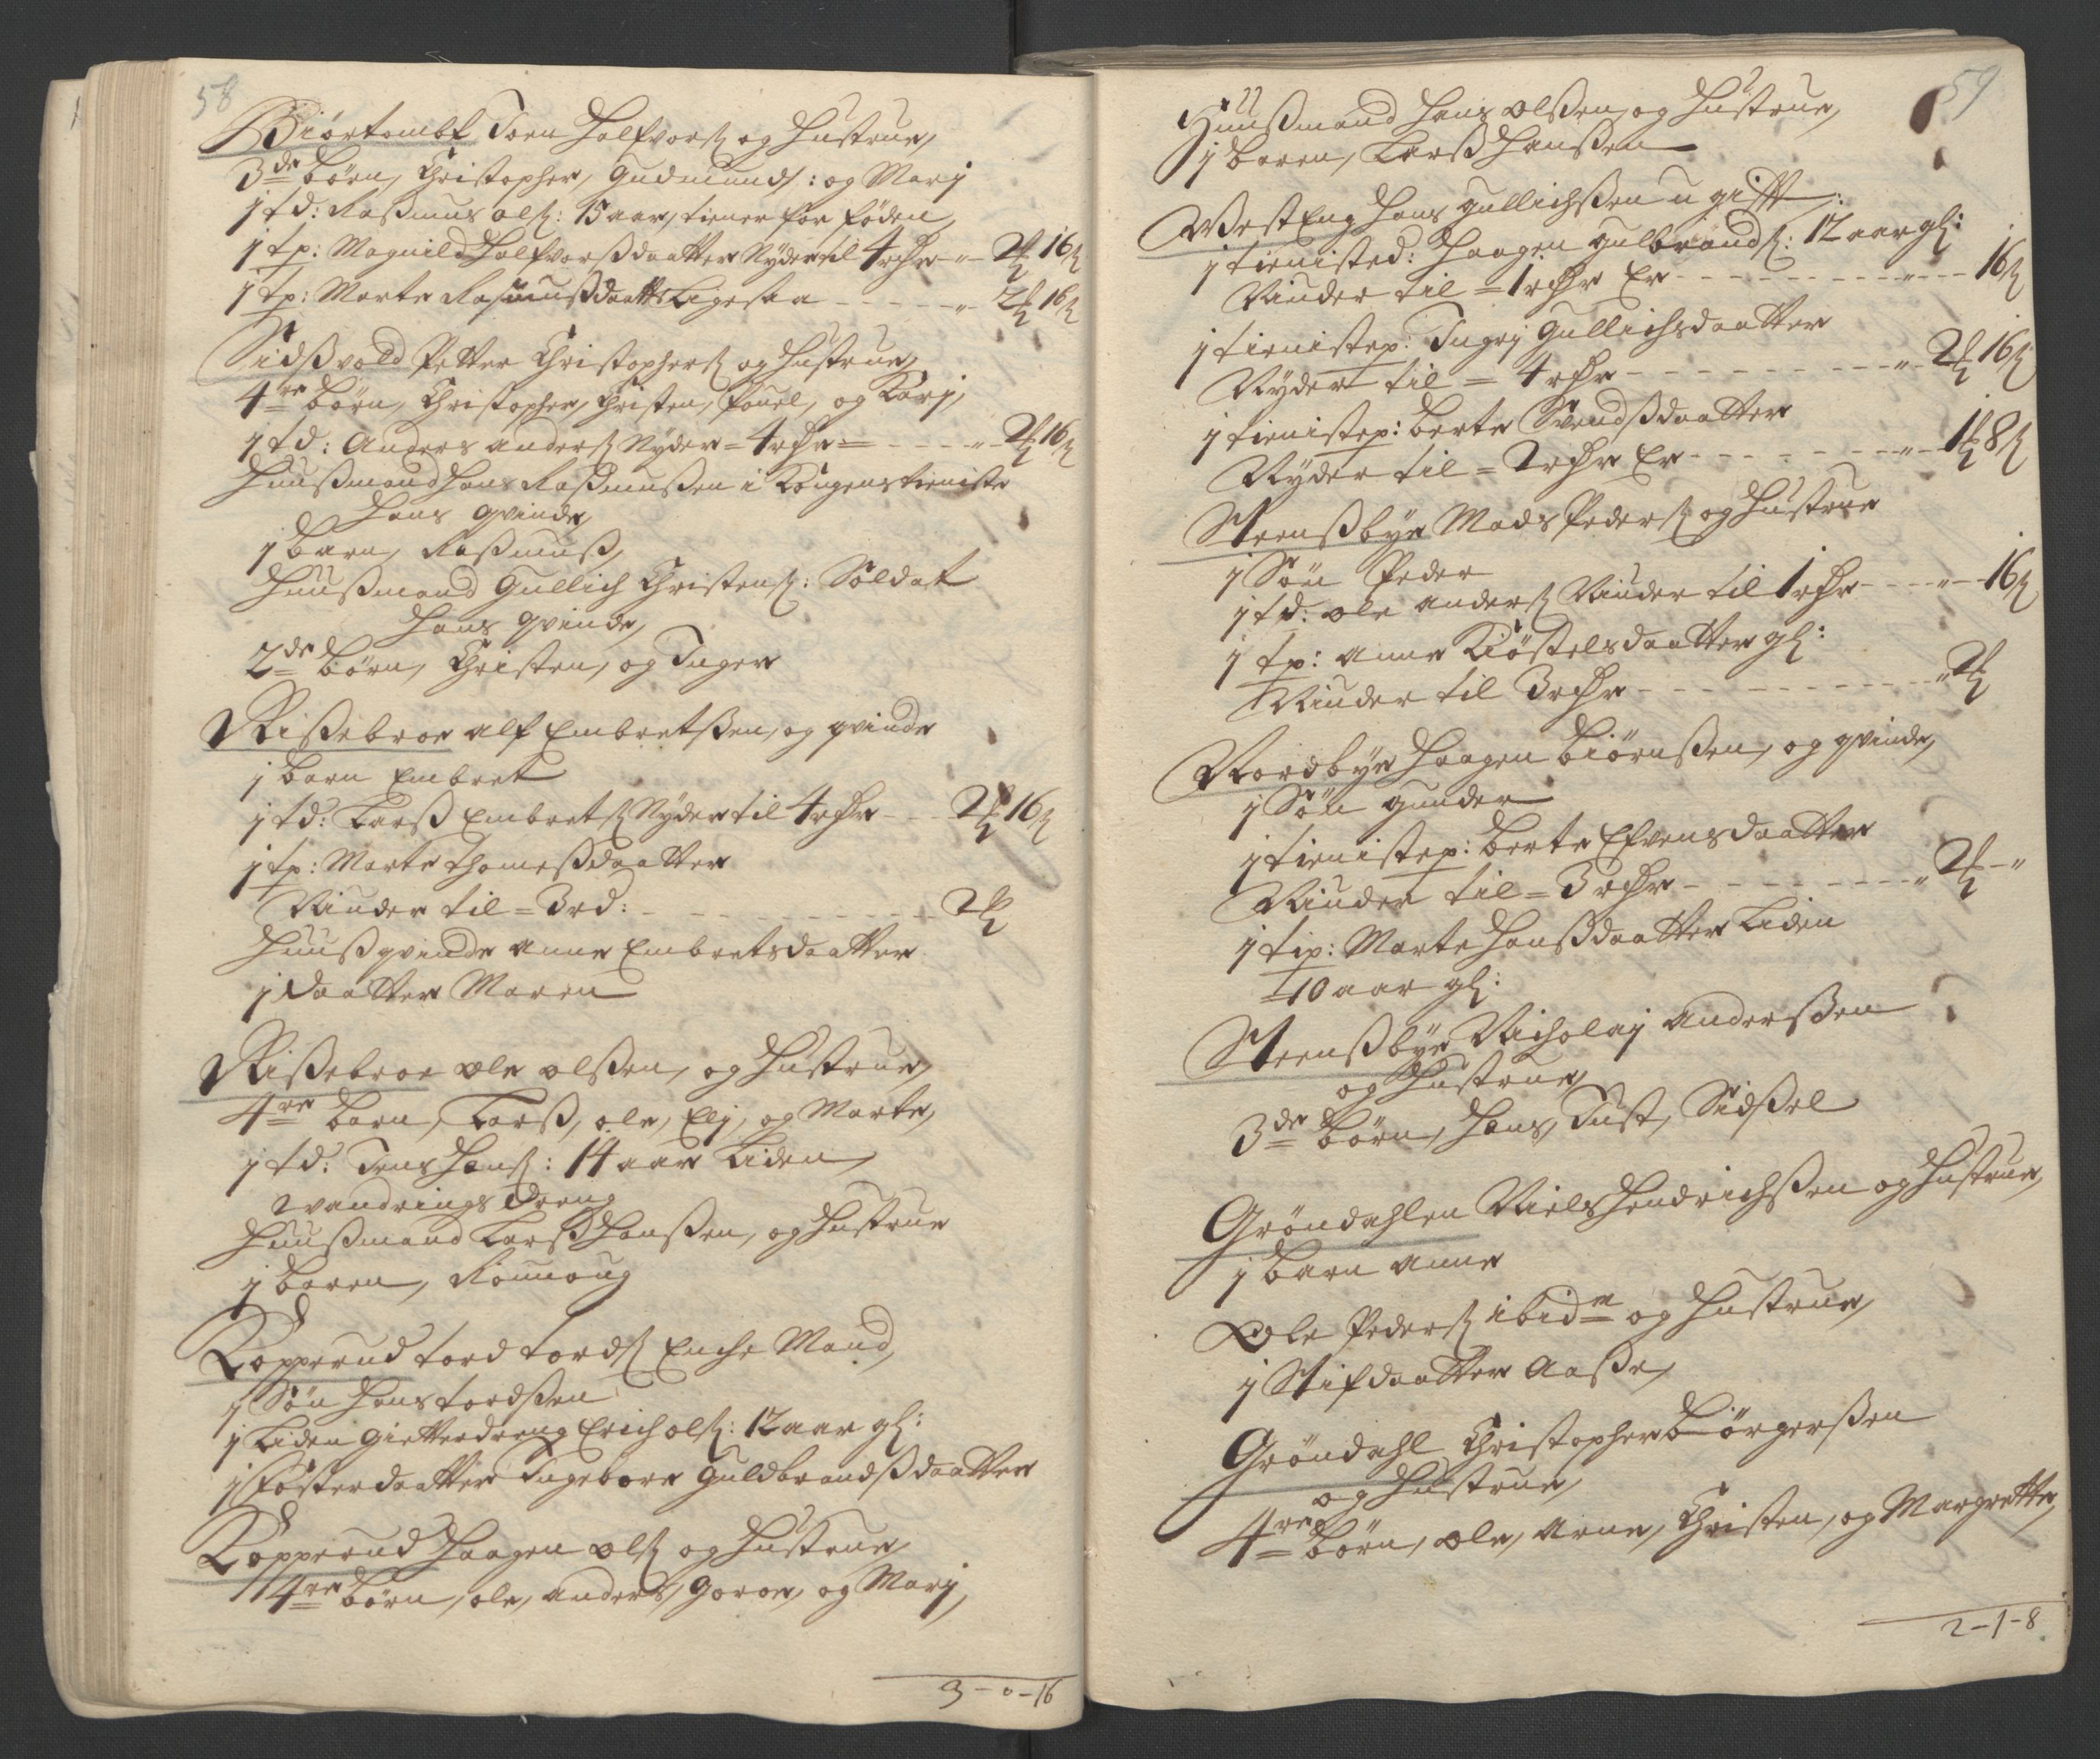 58
Biörtombt Torn Halfvorß og Hustrue,
3de börn, Christopher, Gudmund: og Marj
1 td: Raßmus olß: 15 aar, tiener for föden
1 tp: Magnild Halfvorßdaatter Nyder til 4 rdr - " - 2 16ß
1 tp: Marte Rasmußdaatter Ligesaa - - - - - " 2 16ß
Sidßvold Petter Christophersß og Hustrue,
4re börn, Christopher, Christen, Pouel, og Karj,
1 td: Anders andersß Nyder = 4 rdr = - - - - " - 2 16ß
Huußmand Hans Raßmußen i Kongens tieniste
Hans qvinde,
1 barn, Raßmuß,
Huußmand Gullich Christensß: Soldat
Hans qvinde,
2de börn, Christen, og Inger
Rißebroe alf Embretßen, og qvinde
1 barn Embret
1 td: Larß Embretsß Nyder til 4 rdr - - - 2 16ß
1 tp: Marte Thomeßdaatter
Niuder til = 3 rd: - - - - - - - - - - 2
Huußqvinde anne Embretsdaatter
1 daatter Maren
Rißebroe ole olßen, og Hustrue,
4re barn, Larß, ole, Elj, og Marte,
1 td: Jens Hansß: 14 aar Liden
vandrings dreng
Huußmand Larß Hanßen, og Hustrue
1 barn, Rönnoug
Kopperud tord tordsß Enche Mand,
1 Sön Hans tordßen
1 Liden gietterdreng Erich olß: 12 aar gl:
1 fösterdaatter Ingeborr Guldbrandßdaatter
Kopperud Haagen olß og Hustrue,
4re börn, ole, anders, Goron, og Marj,
3 - 0 - 16
59
Huußmand Hans olßen, og Hustrue,
1 barn, Larß Hanßen
WestEng Hans gullichßen u gift:
1 tienisted: Haagen gulbrandsß: 12 aar gl:
Niuder til = 1 rdr Er - - - - - - - - - - - " - - 16ß
1 tienistep: Ingrj Gullichsdaatter
Nyder til = 4 rdr - - - - - - - - - - " - 2 16ß
1 tienistep: berte Svendßdaatter
Nyder til = 2 rdr Er - - - - - - - - " - 1 8ß
Steenßbye Mads Pedersß og Hustrue
1 Sön Peder
1 td: ole andersß Niuder til 1 rdr - - - " - 16ß
1 tp: anne Kiöstelsdaatter gl:
Niuder til 3 rdr - - - - - - - - - - " 2
Nordbye Haagen biörnßen, og qvinde,
1 Sön gunder
1 tienistep: berte Efvensdaatter
Niuder til = 3 rdr - - - - - - - - - " 2 - "
1 tip: Marte Hanßdaatter Liden
10 aar gl:
Steenßbye Nicholaj anderßen
og Hustrue,
3de börn, Hans, Just, Sidßel
Gröndahlen Niels Hendrichßen og Hustrue,
1 barn anne
Ole Pedersß ibidm og Hustrue,
1 Stifdaatter Aaße,
Gröndahl Christopher börgerßen
og Hustrue,
4re börn, ole, arne, Christen, og Margrette,
2 - 1 - 8